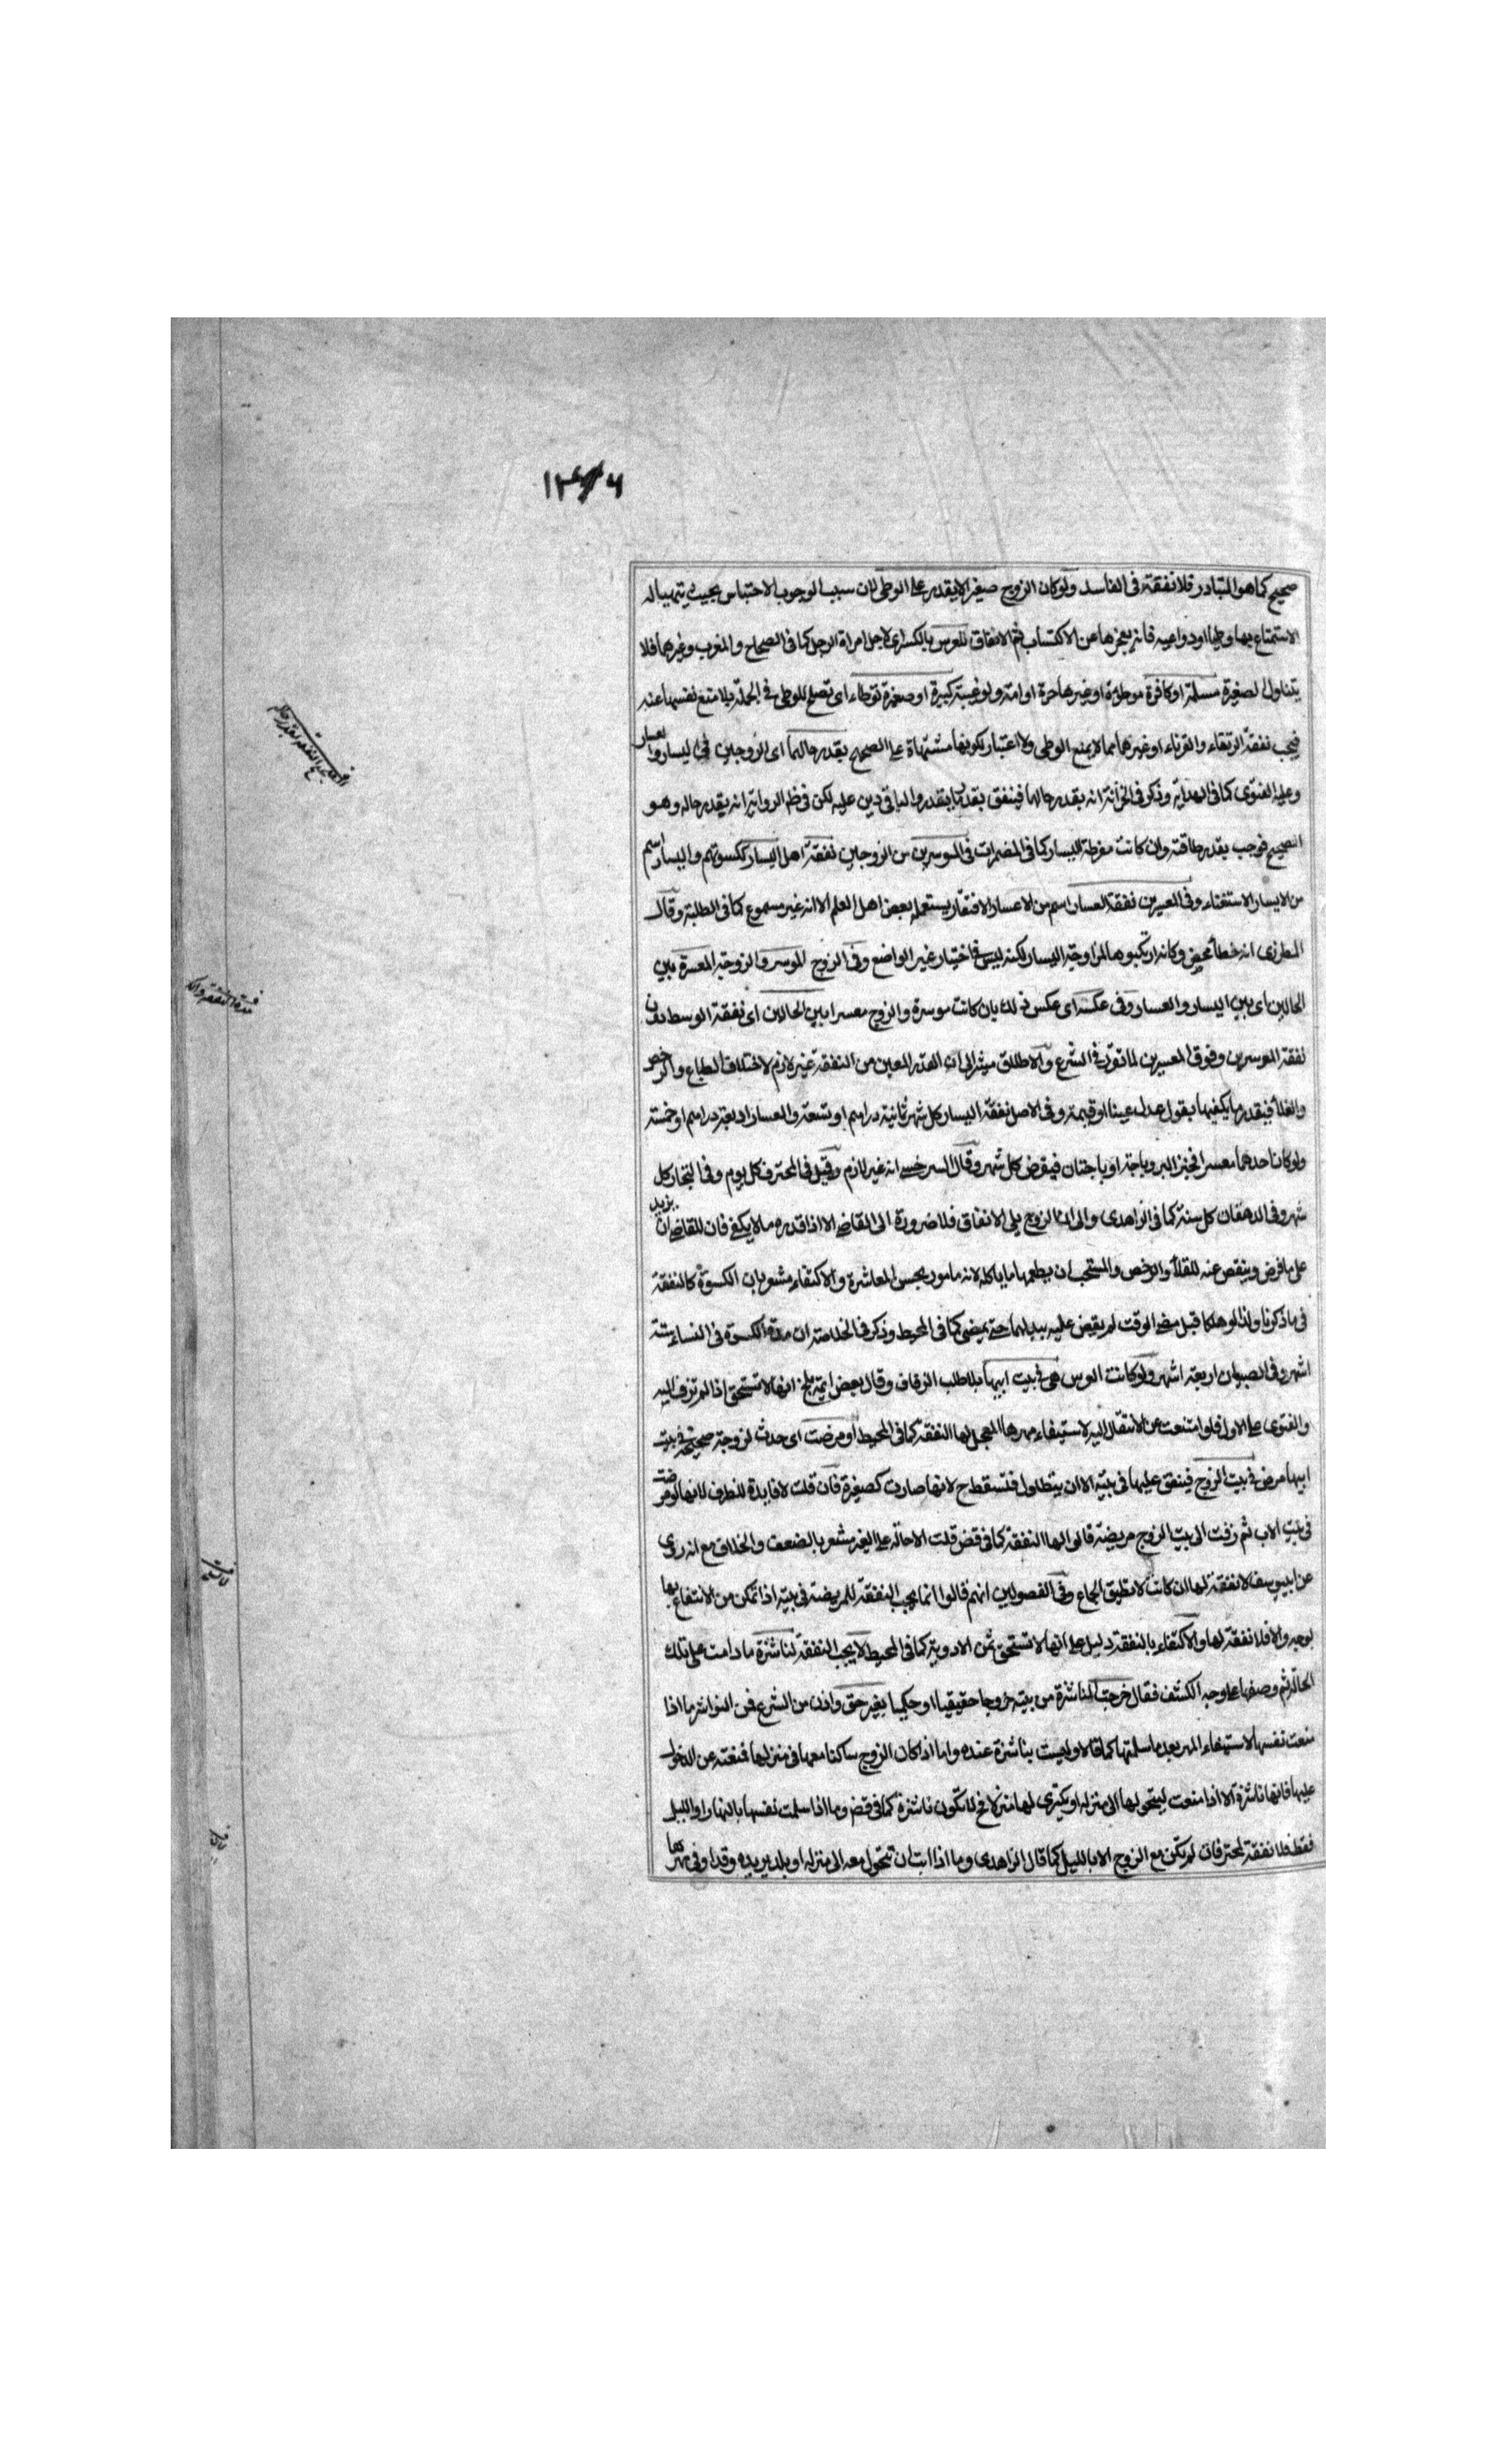 صحيح كما هو المتبادر فلا نفقة فى الفاسد ولو كان الزوج صغيرا لا يقدر على الوطى لان سبب الوجوب الاحتباس بحيث يتهيأ له
الاستمتاع بها وطيا او دواعيه فانه يعجزها عن الاكتساب ثم الانفاق للعرس بالكسر اى لاجل امراة الرجل كما فى الصحاح والمغرب وغيرهما فلا
يتناول الصغيرة مسلمة او كافرة موطؤة او غيرها حرة او امة ولو غيبة كبيرة او صغيرة توطاء اى تصلح للوطى فى الجملة بلا منع نفسها عنه
فيجب نفقة الرتقاء والقرناء او غيرهما مما لا يمنع الوطى ولا اعتبار لكونها مشتهاة على الصحيح بقدر حالهما اى الزوجين فى اليسار والعسار
وعليه الفتوى كما فى الهداية وذكر فى الخزانة انه بقدر حالهما فينفق بقدر ما يقدر والباقى دين عليه لكن فى ظاهر الرواية انه بقدر حاله وهو
الصحيح فوجب بقدر طاقته وان كانت مفرطة اليسار كما فى المضمرات فى الموسرين من الزوجين نفقة اهل اليسار ككسوتهم واليسار اسم
من الايسار الاستغناء وفى المعسرين نفقة العسار اسم من الاعسار الافتقار يستعمله بعض اهل العلم الا انه غير مسموع كما فى الطلبة وقال
المطرزى انه خطأ محض وكانه ارتكبوه لمزاوجة اليسار لكنه ليس فى اختيار غير الواضع وفى الزوج الموسر والزوجة المعسرة بين
الحالين اى بين اليسار والعسار وفى عكسه اى عكس ذلك بان كانت موسرة والزوج معسرا بين الحالين اى نفقة الوسط دون
نفقة الموسرين وفوق المعسرين لما تقرر فى الشرع والاطلاق مشير الى ان القدر المعين من النفقة غير لازم لاختلاف الطباع والرخص
والغلا فيقدر ما يكفيها بقول عدل عينا او قيمة وفى الاصل نفقة اليسار كل شهر ثمانية دراهم او تسعة والعسار اربعة دراهم او خمسة
ولو كان احدهما معسرا فخبز البر وباجة او باجتان فيفرض كل شهر وقال السرخسى انه غير لازم وقيل فى المحترف كل يوم وفى التجار كل
شهر وفى الدهقان كل سنة كما فى الزاهدى والى ان الزوج يلى الانفاق فلا ضرورة الى القاضى الا اذا قدره ما لا يكفى فان للقاضى ان يزيد
على ما فرض وينقص عنه للغلا والرخص والمستحب ان يطعمها ما ياكله لانه مامور بحسن المعاشرة والاكتفاء مشعر بان الكسوة كالنفقة
فى ما ذكرنا ولذا لو هلكا قبل مضى الوقت لم يقض عليه ببدلهما حتى يمضى كما فى المحيط وذكر فى الخلاصة ان مدة الكسوة فى النساء ستة
اشهر وفى الصبيان اربعة اشهر ولو كانت العرس هى فى بيت ابيها بلا طلب الزفاف وقال بعض ايمة بلخ انها لا تستحق اذا لم تزف اليه
والفتوى على الاول فلو امتنعت عن الانتقال اليه لاستيفاء مهرها المعجل لها النفقة كما فى المحيط او مرضت اى حدث لزوجة صحيحة فى بيت
ابيها مرض فى بيت الزوج فينفق عليها فى بيته الا ان يتطاول فتسقط ح لانها صارت كصغيرة فان قلت لا فايدة للظرف لانها لو مرضت
فى بيت الاب ثم زفت الى بيت الزوج مريضة قالوا لها النفقة كما فى قض قلت الاحالة على الغير مشعر بالضعف والخلاف مع انه روى
عن ابى يوسف لا نفقة لها ان كانت لا تطيق الجماع وفى الفصولين انهم قالوا انما يجب النفقة للمريضة فى بيته اذا تمكن من الانتفاع بها
بوجه والا فلا نفقة لها والاكتفاء بالنفقة دليل على انها لا تستحق ثمن الادوية كما فى المحيط لا يجب النفقة لناشزة ما دامت على تلك
الحالة ثم وصفها على وجه الكشف فقال خرجت الناشزة من بيته خروجا حقيقيا او حكميا بغير حق واذن من الشرع فمن النواشز ما اذا
منعت نفسها لاستيفاء المهر بعد ما سلمتها كما قالا وليست بناشزة عنده واما اذا كان الزوج ساكنا معها فى منزلها فمنعته عن الدخول
عليها فانها ناشزة الا اذا منعت ليتحولها الى منزله او يكترى لها منزلا فح لا تكون ناشزة كما فى قض وما اذا سلمت نفسها بالنهار او الليل
فقط فلا نفقة لمحترفات لم تكن مع الزوج الا بالليل كما قال الزاهدى وما اذا ابت ان تتحول معه الى منزله او بلد يريده وقد اوفى مهرها